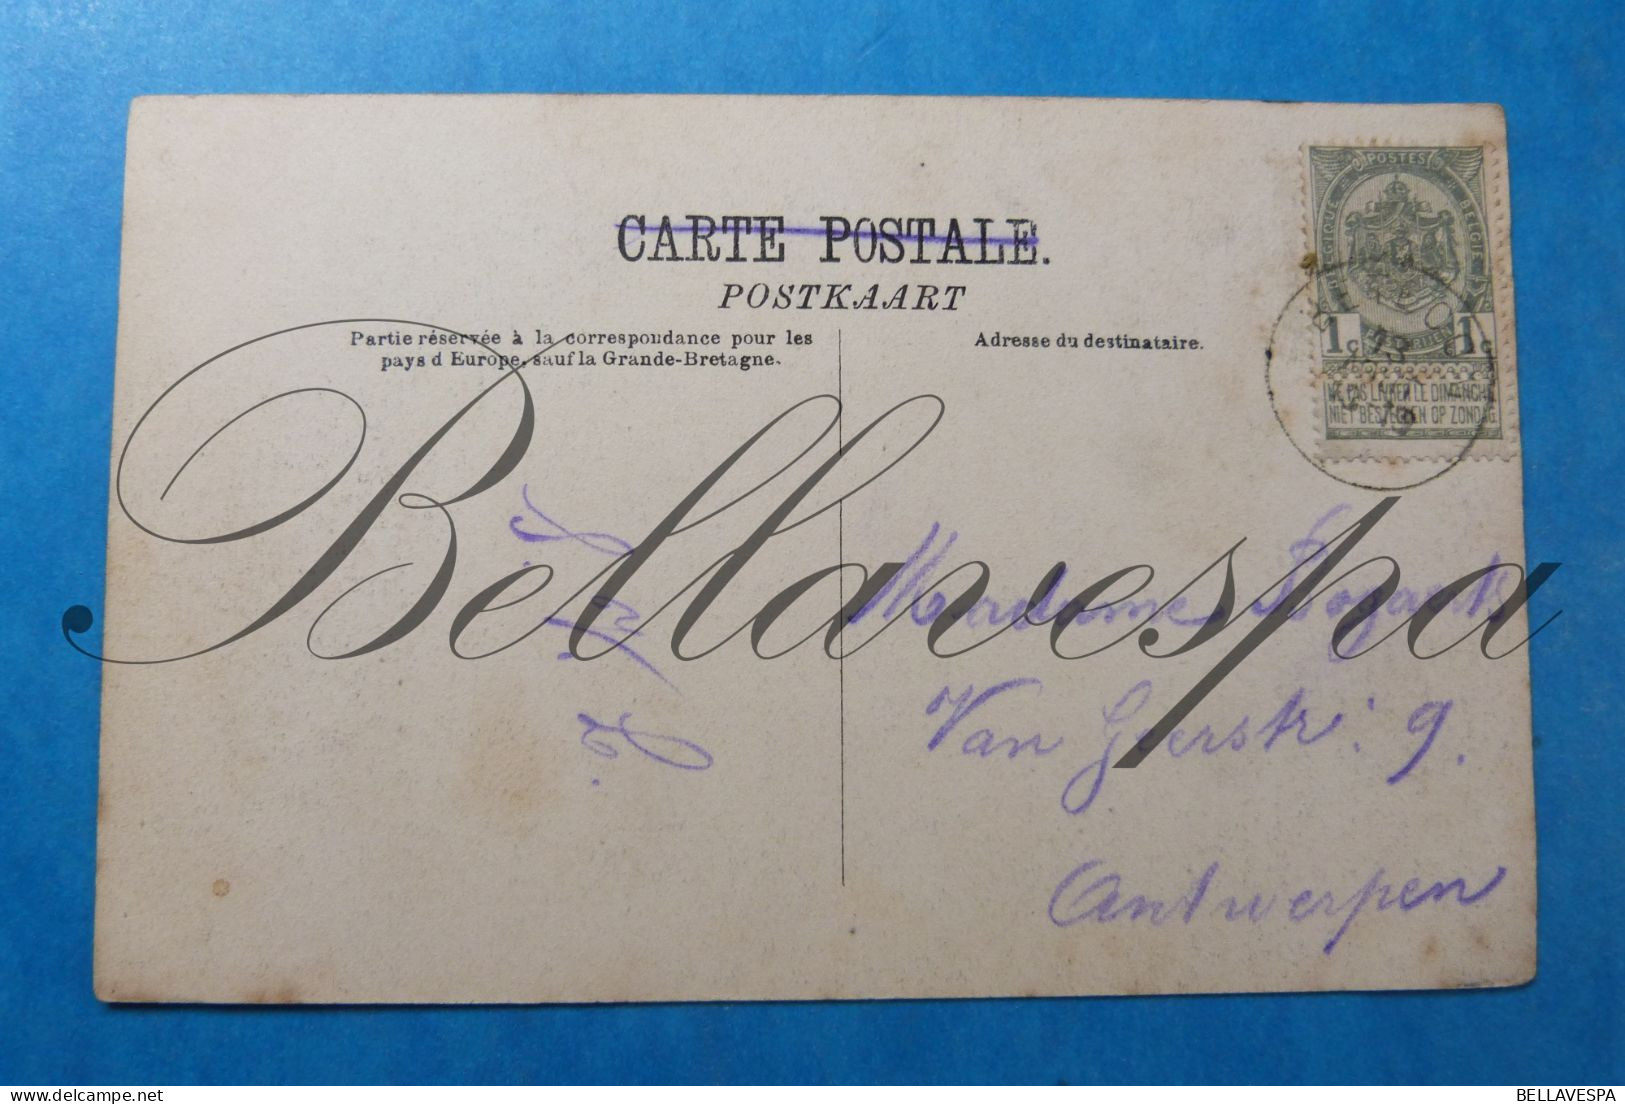 CARTE POSTALE.
POSTKAART
Partie réservée à la correspondance pour les
pays d Europe, sauf la Grande-Bretagne.
Adresse du destinataire.
POSTES
BELGIQUE BELGIË
1c 1c
NE PAS LIVRER LE DIMANCHE
NIET BESTELLEN OP ZONDAG
Bellavespa
Madame Bogaerts
Van Geerstr: 9.
Antwerpen
BELLAVESPA